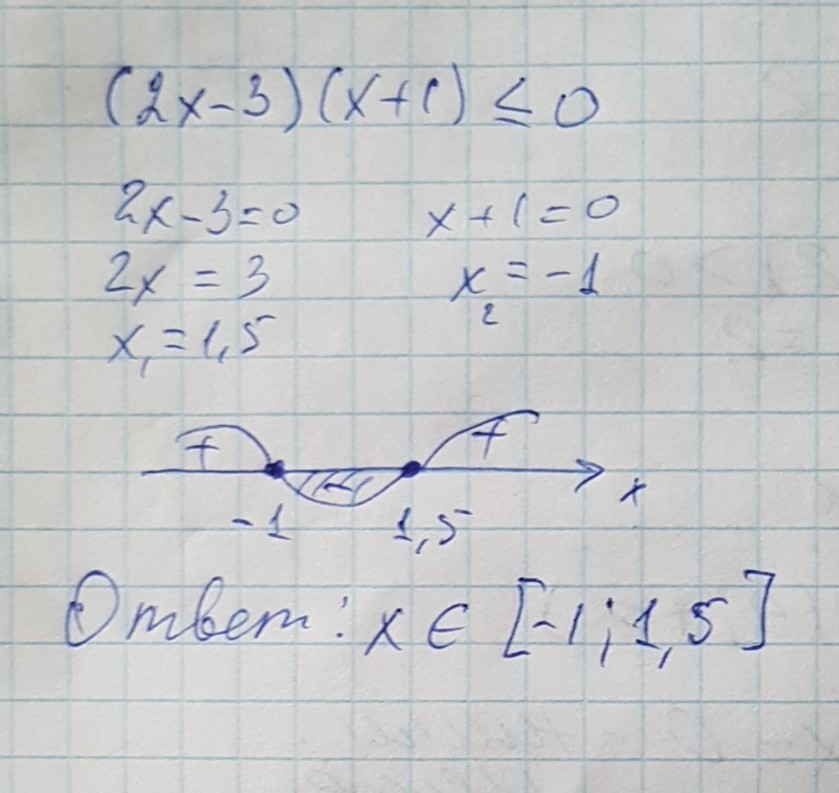 (2x-3)(x+1) ≤ 0
2x-3=0 x+1=0
2x = 3 x₂ = -1
x₁ = 1,5
+ - +
-1 1,5 x
Ответ: x ∈ [-1; 1,5]